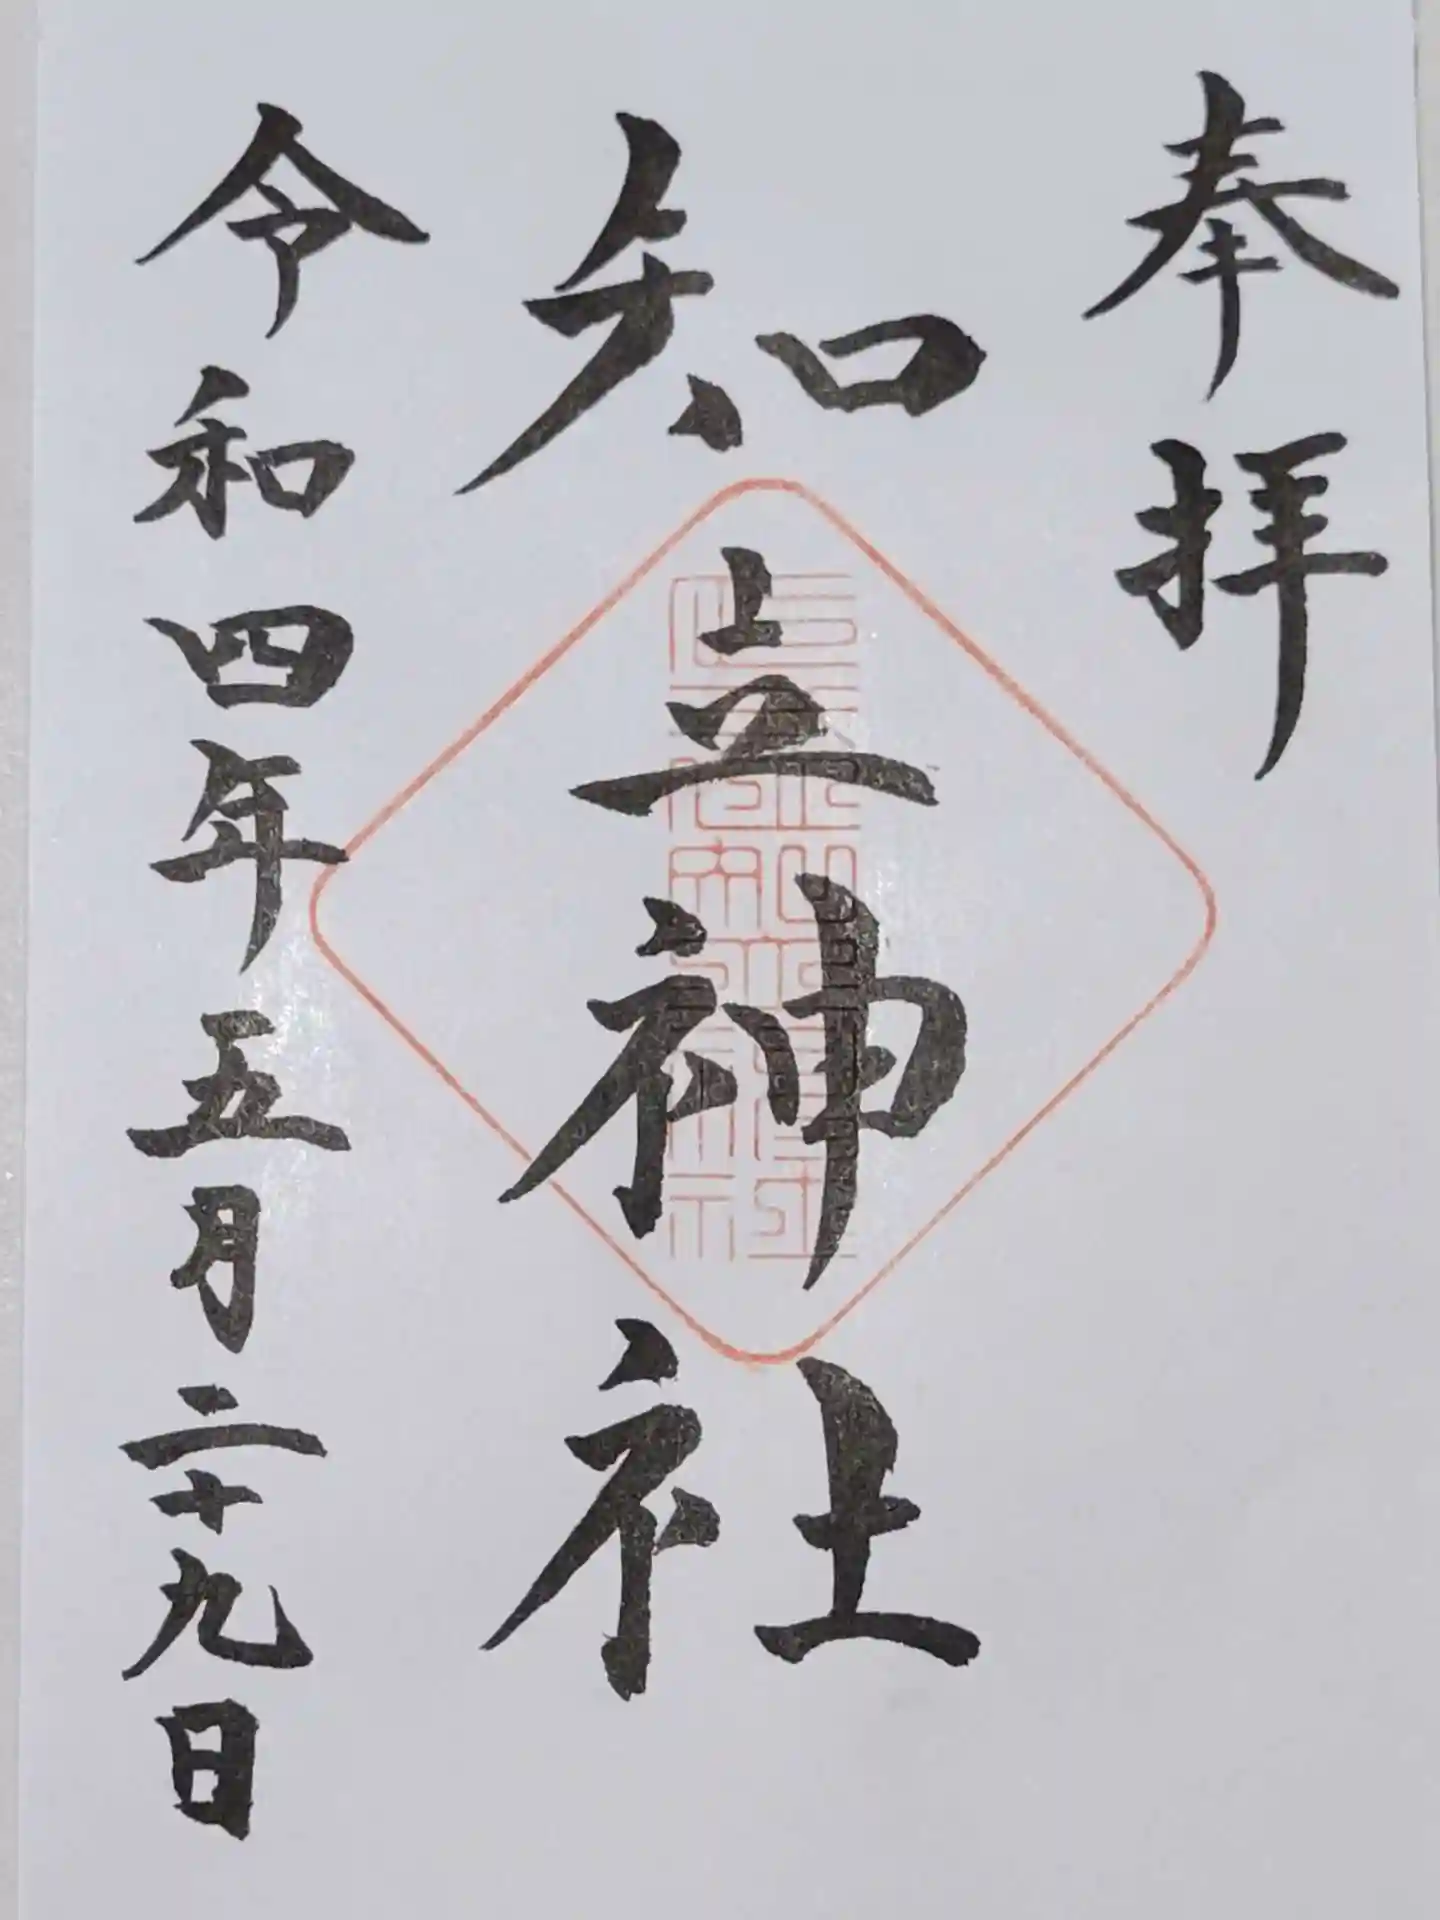 奉拝
知立神社
令和四年五月二十九日